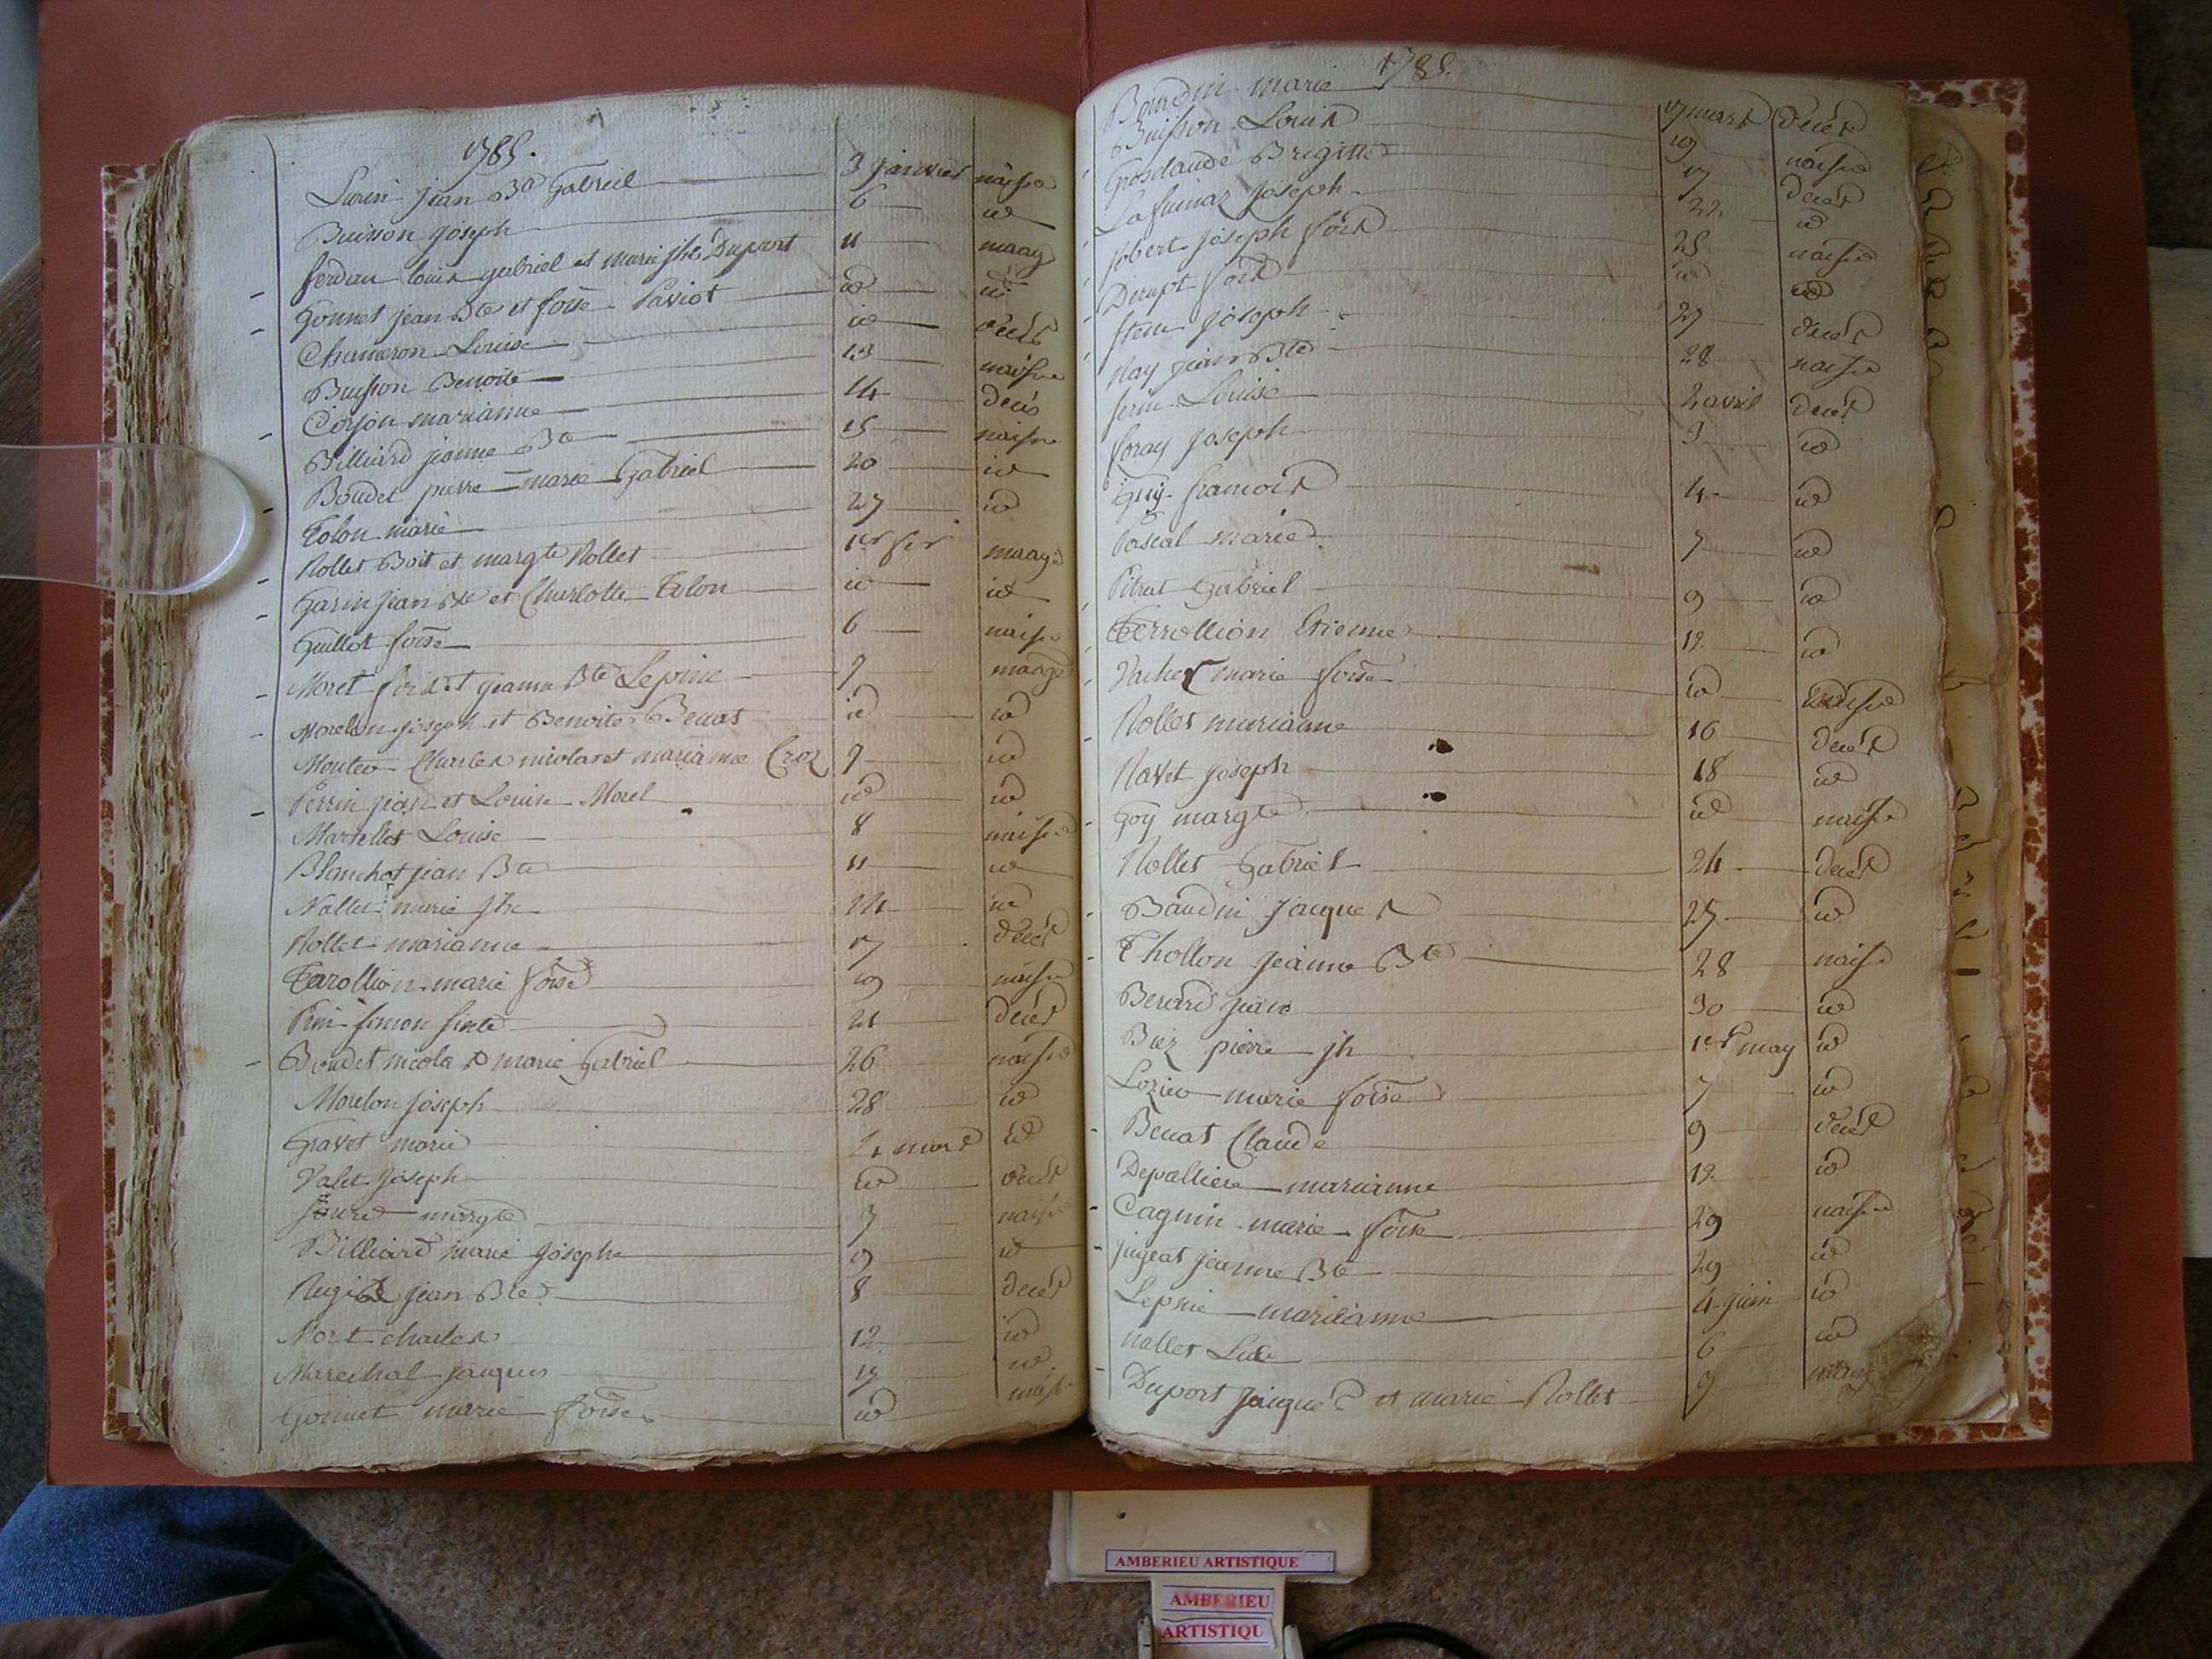 1785.
Buisson joseph 6 id
Gonnet jean Bte et foise Paviot id id
Chameron Louise id decès
Buisson Benoite 13 naisse
Corjon marianne 14 decès
Billiard jeanne Bte 15 naisse
Boudet pierre marie Gabriel 20 id
Tolon marie 27 id
Rollet Boit et margte Rollet 1er fer maage
Garin jean Bte et Charlotte Tolon id id
Guillot foise 6 naisse
Moret fois et jeanne Bte Lepine 7 maage
Morelon joseph et Benoite Benat id id
Charles nicolas et marianne Croz 7 id
Perrin jean et Louise Morel id id
Martellet Louise 8 naisse
Blanchot jean Bte 11 id
Nallet marie jhe 14 id
Rollet marianne 17 decès
Terollion marie foise 19 naisse
simon 21 decès
Boudet nicolas marie Gabriel 26 naisse
Morelon joseph 28 id
Gravet marie mars id
Valet joseph id decès
margte 7 naisse
Billiard marie josephe 9 id
jean Bte 8 decès
Moret charles 12 id
Marechal jacques 17 id
Gonnet marie foise id naisse
1785.
Baudin marie 17 mars decès
Buisson Louis 19 naisse
Grosclaude Brigitte 17 decès
joseph 22 id
Jobert joseph fois 25 naisse
Dérupt fois id id
joseph 27 decès
Ray jean Bte 28 naisse
Louise 2 avril decès
foray joseph 3 id
Guy francois 4 id
Pascal marie 7 id
Pitrat Gabriel 9 id
Terrollion Etienne 12 id
Vacher marie foise id naisse
Rollet marianne 16 decès
Ravet joseph 18 id
Goy margte id naisse
Rollet Gabriel 24 decès
Baudin jacques 25 id
Thollon jeanne Bte 28 naisse
Berard jean 30 id
Biez pierre jh 1er may id
marie foise 7 id
Benat Claude 9 decès
Depalliere marianne 12 id
Cagnin marie foise 29 naisse
jugeat jeanne Bte 29 id
Lepine marianne 4 juin id
nallet 6 id
Duport jacques et marie Rollet 9 maage
AMBERIEU ARTISTIQUE
AMBERIEU
ARTISTIQU